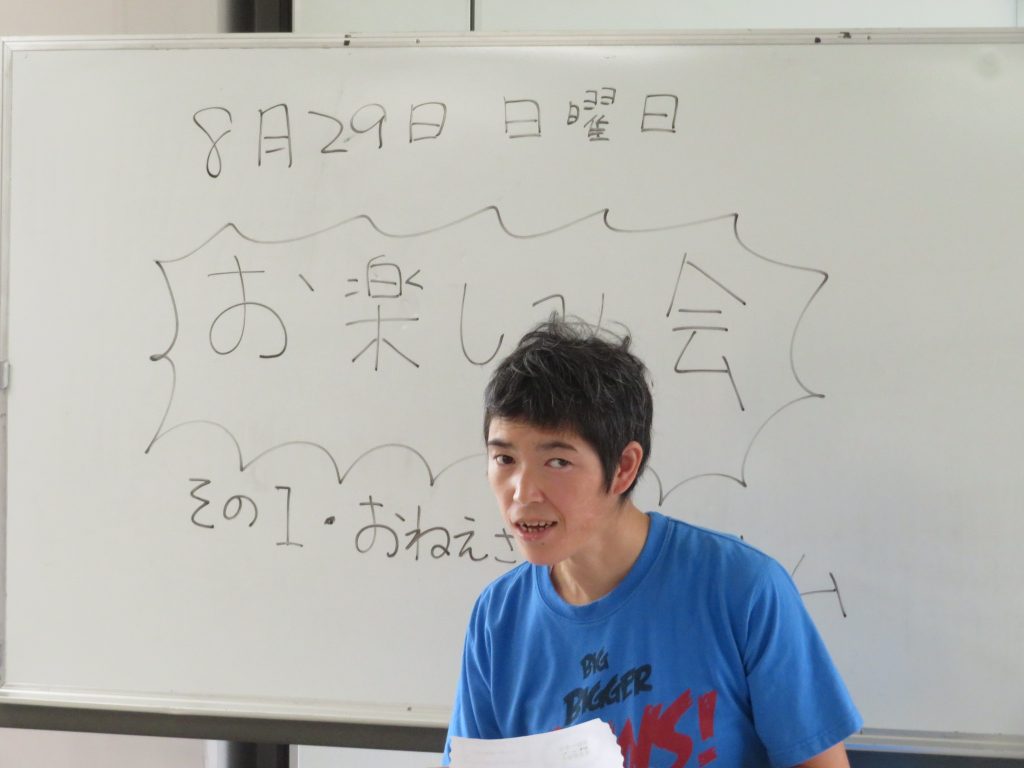 8月29日 日曜日
お楽しみ会
その1・おねえさ
BIG
BIGGER
NS!